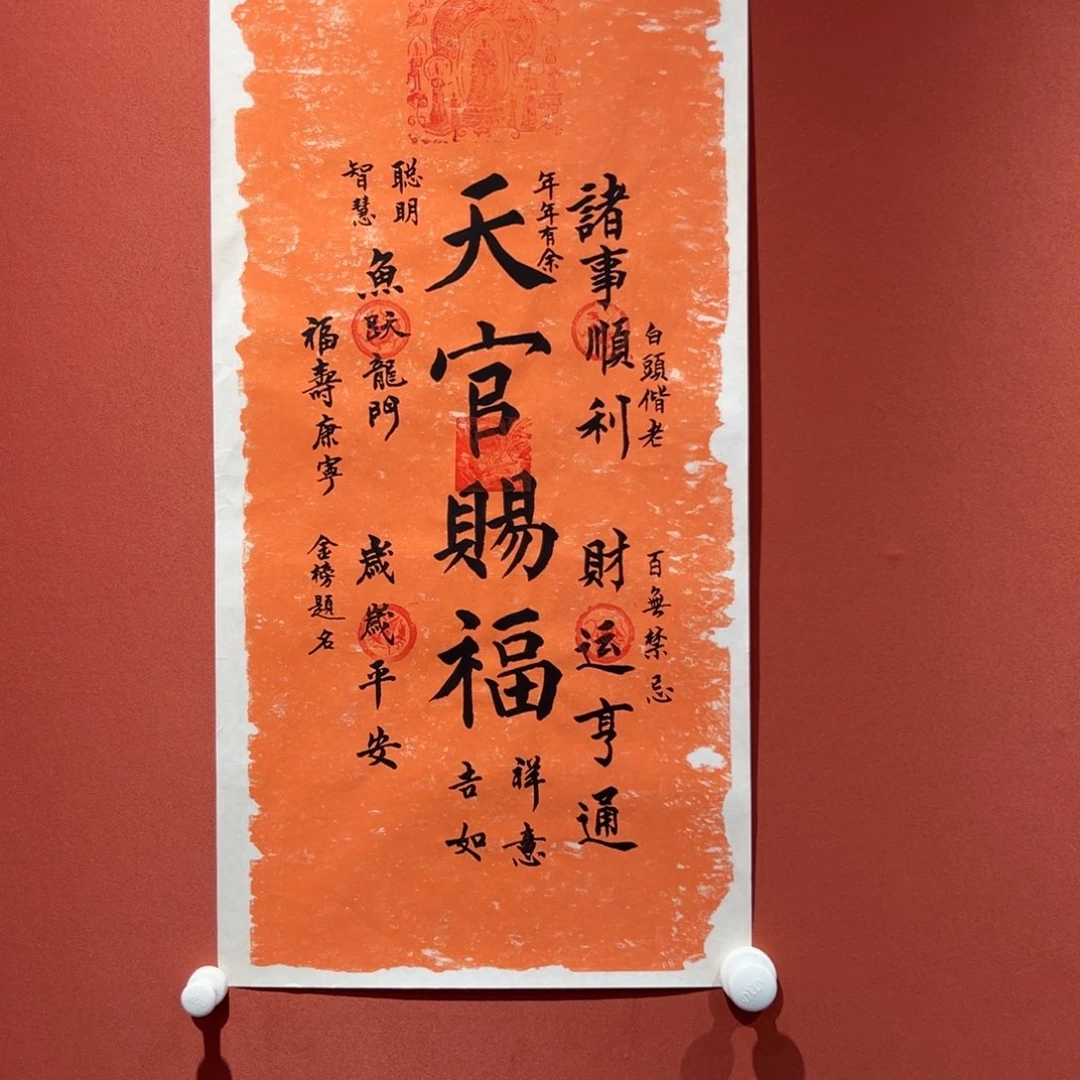 白頭偕老
百無禁忌
諸事順利
財运亨通
年年有余
天官賜福
吉祥
如意
聪明
智慧
魚跃龍門
歲歲平安
福壽康寧
金榜題名